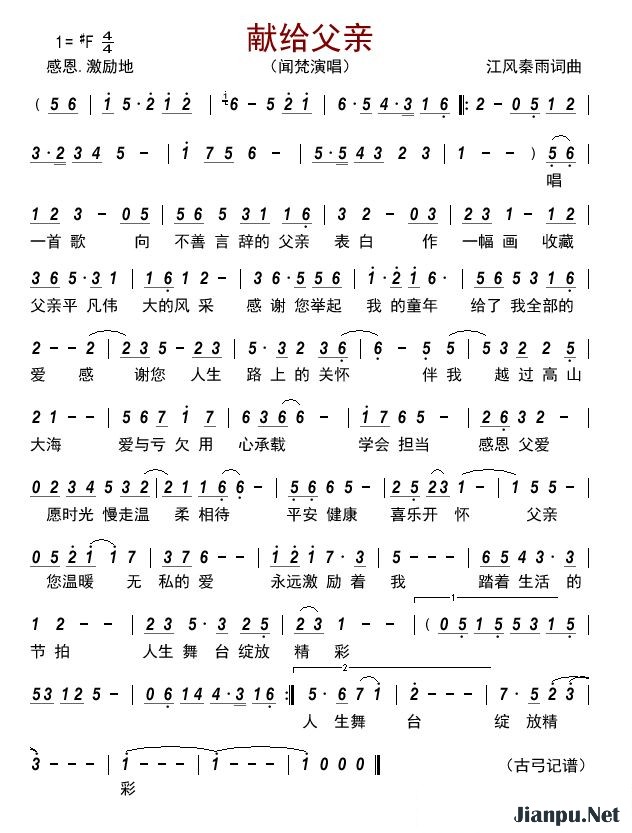 献给父亲
1= #F 4/4
感恩.激励地 （闻梵演唱） 江风秦雨词曲
( 5 6 | 1 5 · 2 1 2 | 6 - 5 2 1 | 6 · 5 4 · 3 1 6 |: 2 - 0 5 1 2 |
3 · 2 3 4 5 - | 1 7 5 6 - | 5 · 5 4 3 2 3 | 1 - - ) 5 6 |
唱
1 2 3 - 0 5 | 5 6 5 3 1 1 6 | 3 2 - 0 3 | 2 3 1 - 1 2 |
一首 歌 向 不善 言 辞的 父亲 表 白 作 一幅 画 收藏
3 6 5 · 3 1 | 1 6 1 2 - | 3 6 · 5 5 6 | 1 · 2 1 6 - | 5 6 5 3 1 6 |
父亲平 凡伟 大的风 采 感 谢 您举起 我 的童年 给了 我全部的
2 - - 2 | 2 3 5 - 2 3 | 5 · 2 3 2 3 6 | 6 - 5 5 | 5 3 2 2 5 |
爱 感 谢您 人生 路 上 的 关怀 伴 我 越 过 高 山
2 1 - - | 5 6 7 1 7 | 6 3 6 6 - | 1 7 6 5 - | 2 6 3 2 - |
大海 爱与亏 欠 用 心承载 学会 担当 感恩 父爱
0 2 3 4 5 3 2 | 2 1 1 6 6 - | 5 6 6 5 - | 2 5 2 3 1 - | 1 5 5 - |
愿时光 慢走温 柔 相待 平安 健康 喜乐开 怀 父亲
0 5 2 1 1 7 | 3 7 6 - - | 0 1 2 1 7 · 3 | 1 - - - | 6 5 4 3 · 3 |
您温暖 无 私的 爱 永远激 励 着 我 踏着 生活 的
1
1 2 - - | 2 2 3 5 · 3 2 5 | 2 3 1 - | ( 0 5 1 5 5 3 1 5 |
节 拍 人生 舞 台 绽放 精 彩
2
5 3 1 2 5 - | 0 6 1 4 4 · 3 1 6 :| 5 · 6 7 1 | 2 - - - | 7 · 5 2 3 |
人 生舞 台 绽 放精
3 - - | 1 - - - | 1 - - - | 1 0 0 0 ‖ （古弓记谱）
彩
Jianpu.Net